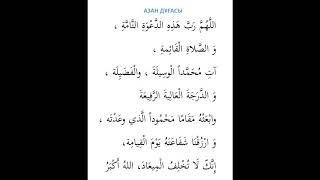 АЗАН ДҰҒАСЫ
اللَّهُمَّ رَبَّ هَذِهِ الدَّعْوَةِ التَّامَّةِ ،
وَ الصَّلَاةِ الْقَائِمَةِ ،
آتِ مُحَمَّداً الْوَسِيلَةَ ، والْفَضِيلَةَ ،
وَ الدَّرَجَةَ الْعَالِيَةَ الرَّفِيعَةَ
وابْعَثْهُ مَقَامًا مَحْمُوداً الَّذي وعَدْتَه ،
وَ ارْزُقْنَا شَفَاعَتَهُ يَوْمَ الْقِيَامِةِ ،
إِنَّكَ لَا تُخْلِفُ الْمِيعَادَ، اللهُ أَكْبَرُ